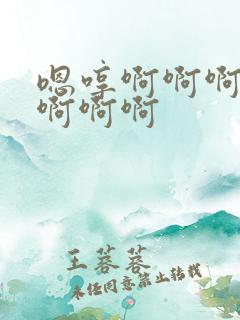 嗯哼啊啊啊
啊啊啊
王蓉蓉
未经同意禁止转载